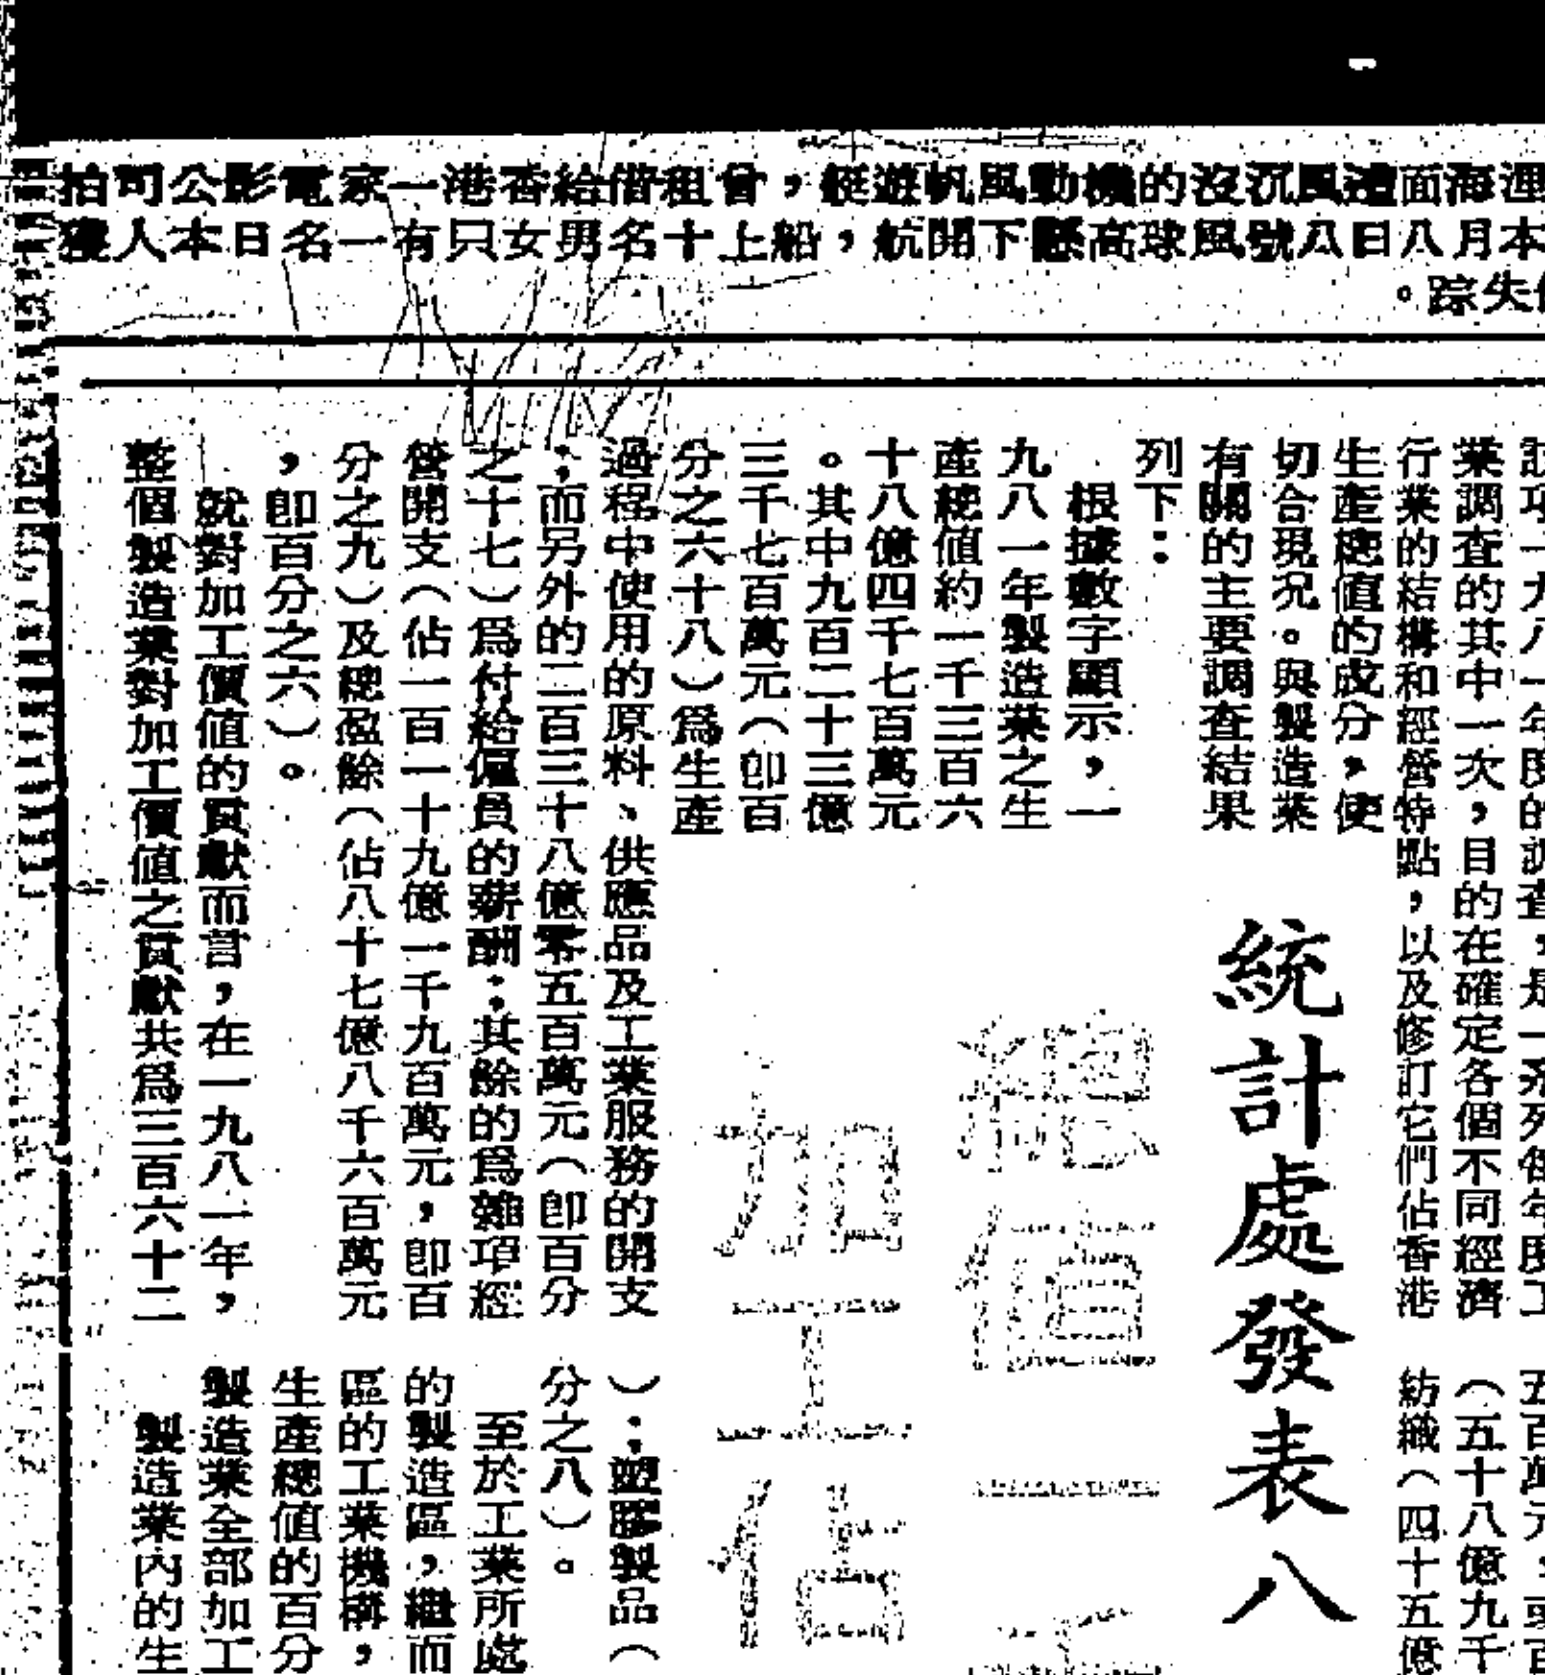 浬海面遭風沉沒的機動風帆遊艇，曾租借給香港一家電影公司拍
本月八日八號風球高懸下開航，船上十名男女只有一名日本人獲
失踪。
業調查的其中一次，目的在確定各個不同經濟
行業的結構和經營特點，以及修訂它們佔香港
生產總值的成分，使
切合現況。與製造業
有關的主要調查結果
列下：
根據數字顯示，一
九八一年製造業之生
產總值約一千三百六
十八億四千七百萬元
。其中九百二十三億
三千七百萬元（即百
分之六十八）爲生產
過程中使用的原料、供應品及工業服務的開支
；而另外的二百三十八億零五百萬元（即百分
之十七）爲付給僱員的薪酬；其餘的爲雜項經
營開支（佔一百一十九億一千九百萬元，即百
分之九）及總盈餘（佔八十七億八千六百萬元
，即百分之六）。
就對加工價值的貢獻而言，在一九八一年，
整個製造業對加工價值之貢獻共爲三百六十二
統計處發表八
總值
加工估
（五十八億九千
紡織（四十五億
）；塑膠製品（
分之八）。
至於工業所處
的製造區，繼而
區的工業機構，
生產總值的百分
製造業全部加工
製造業內的生